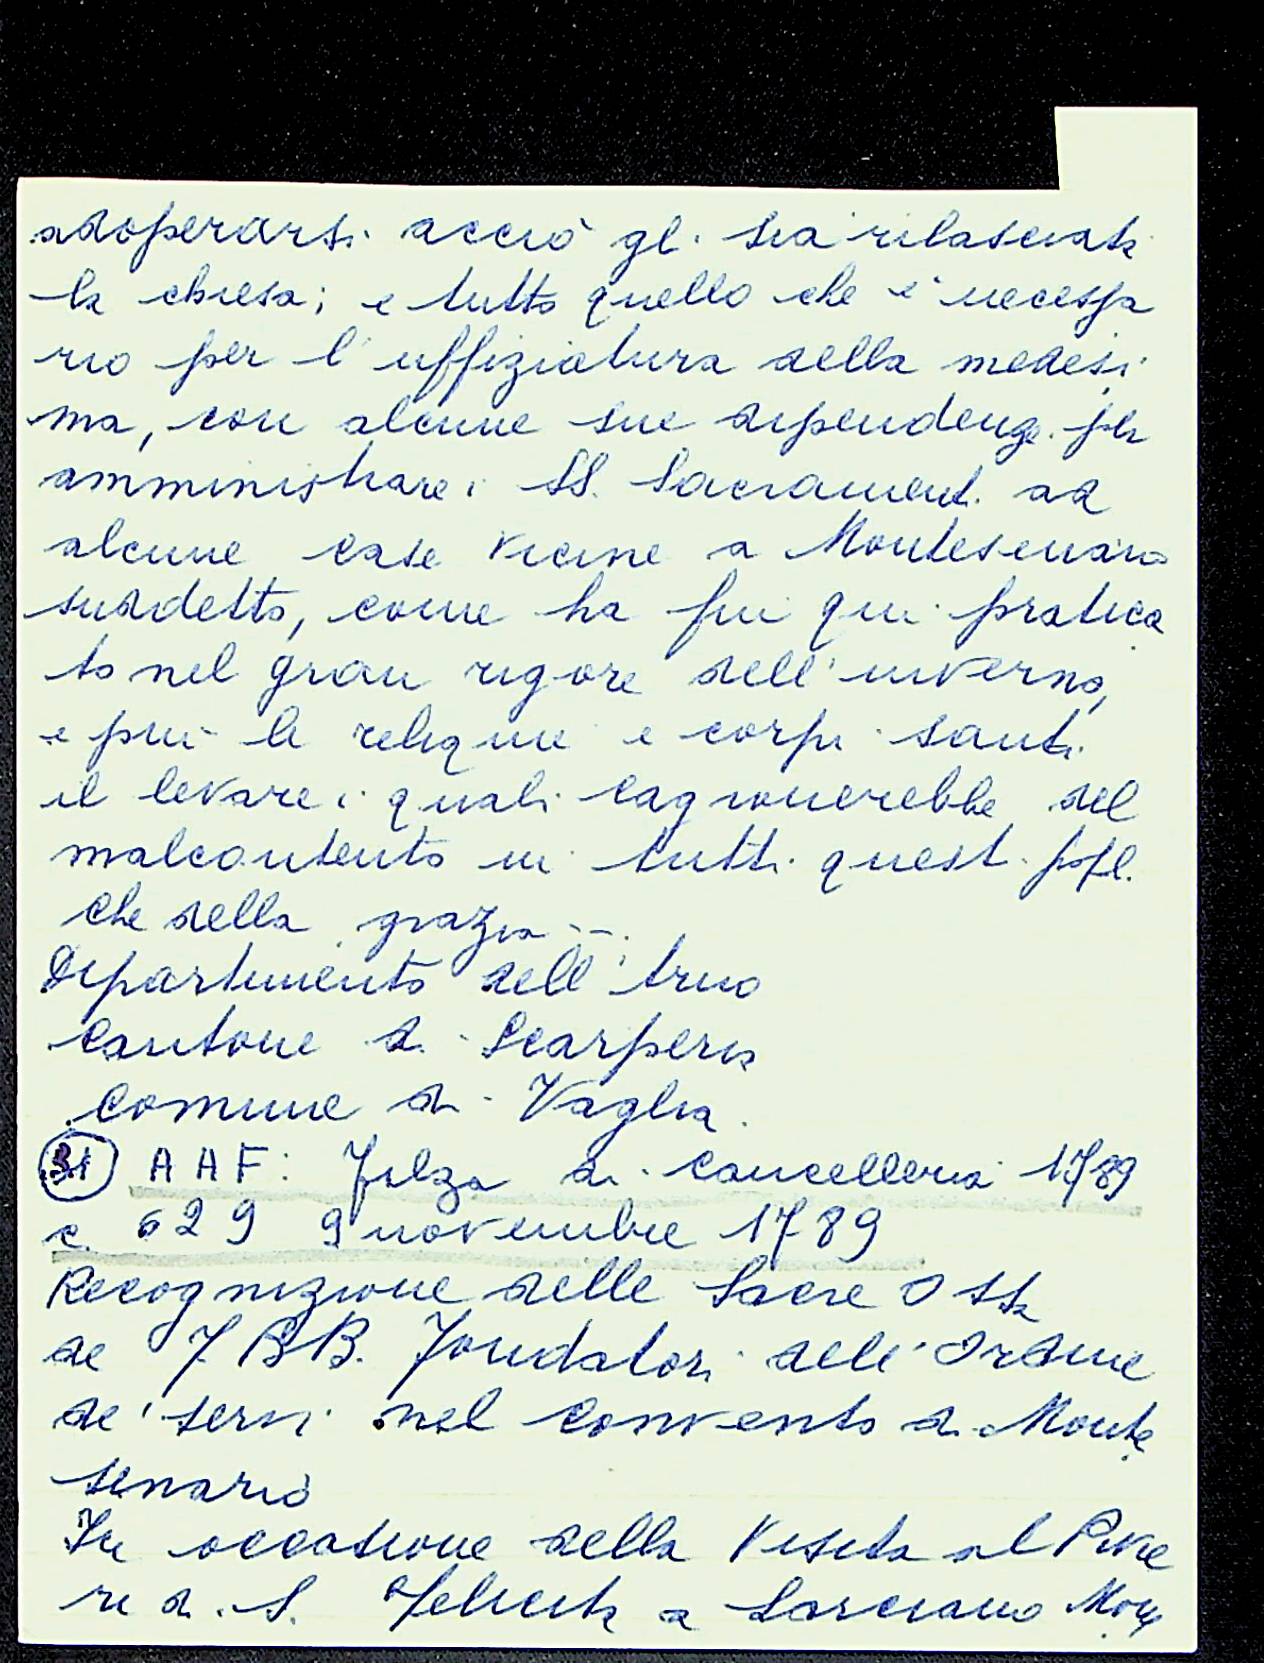 adoperarsi acciò gli sia rilasciata
la chiesa; e tutto quello che è necessa
rio per l'uffiziatura della medesi
ma, con alcune sue dipendenze per
amministrare i SS. Sacramenti ad
alcune case vicine a Montesenario
suddetto, come ha fin qui pratica
to nel gran rigore dell'inverno,
e più le reliquie e corpi santi
il levare i quali cagionerebbe del
malcontento in tutti questi popoli
che della grazia ...
Dipartimento dell'Arno
Cantone di Scarperia
Comune di Vaglia.
31 AAF: Filza di Cancelleria 1789
c. 629 9 novembre 1789
Recognizione delle Sacre Ossa
de 7 BB. Fondatori dell'Ordine
de' Servi nel Convento di Monte
senario
In occasione della Visita al Pivie
re di S. Felicita a Larciano Mons